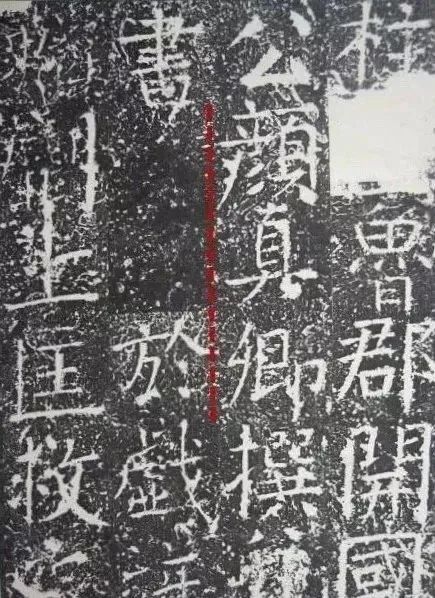 柱魯郡開國
公顏真卿撰
書於戲
上匡救